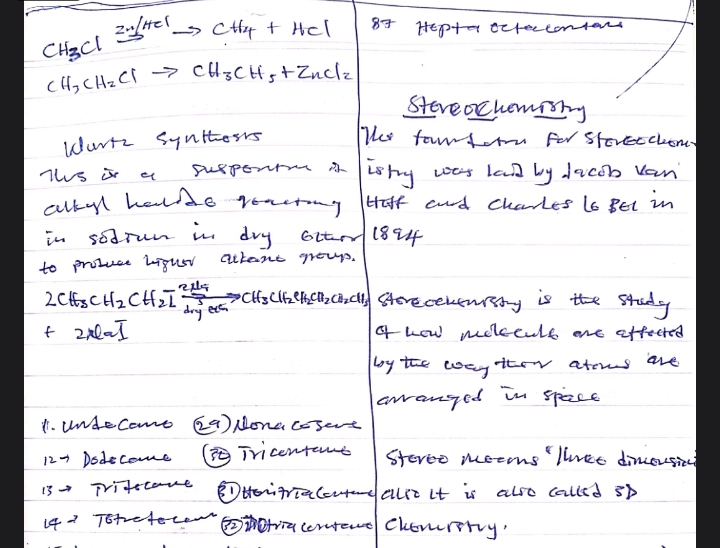 CH3Cl Zn/HCl → CH4 + HCl
CH3CH2Cl → CH3CH3 + ZnCl2
Wurtz Synthesis
This is a in
alkyl halide reacting
in sodium in dry ether
to produce higher alkane group.
2CH3CH2CH2I 2Na → dry CH3CH2CH2CH2CH2CH3
+ 2NaI
11. Undecane (29) Nonacosane
12 → Dodecane (30) Tricontane
13 → Tridecane (31) Hentriacontane
14 → Tetradecane (32) Dotriacontane
87 Hepta Octacontane
Stereochemistry
The foundation for Stereochem-
istry was laid by Jacob Van
Hoff and Charles le Bel in
1894
Stereochemistry is the study
of how molecule are affected
by the way their atoms are
arranged in space
Stereo means "three dimension
also it is also called 3D
Chemistry.